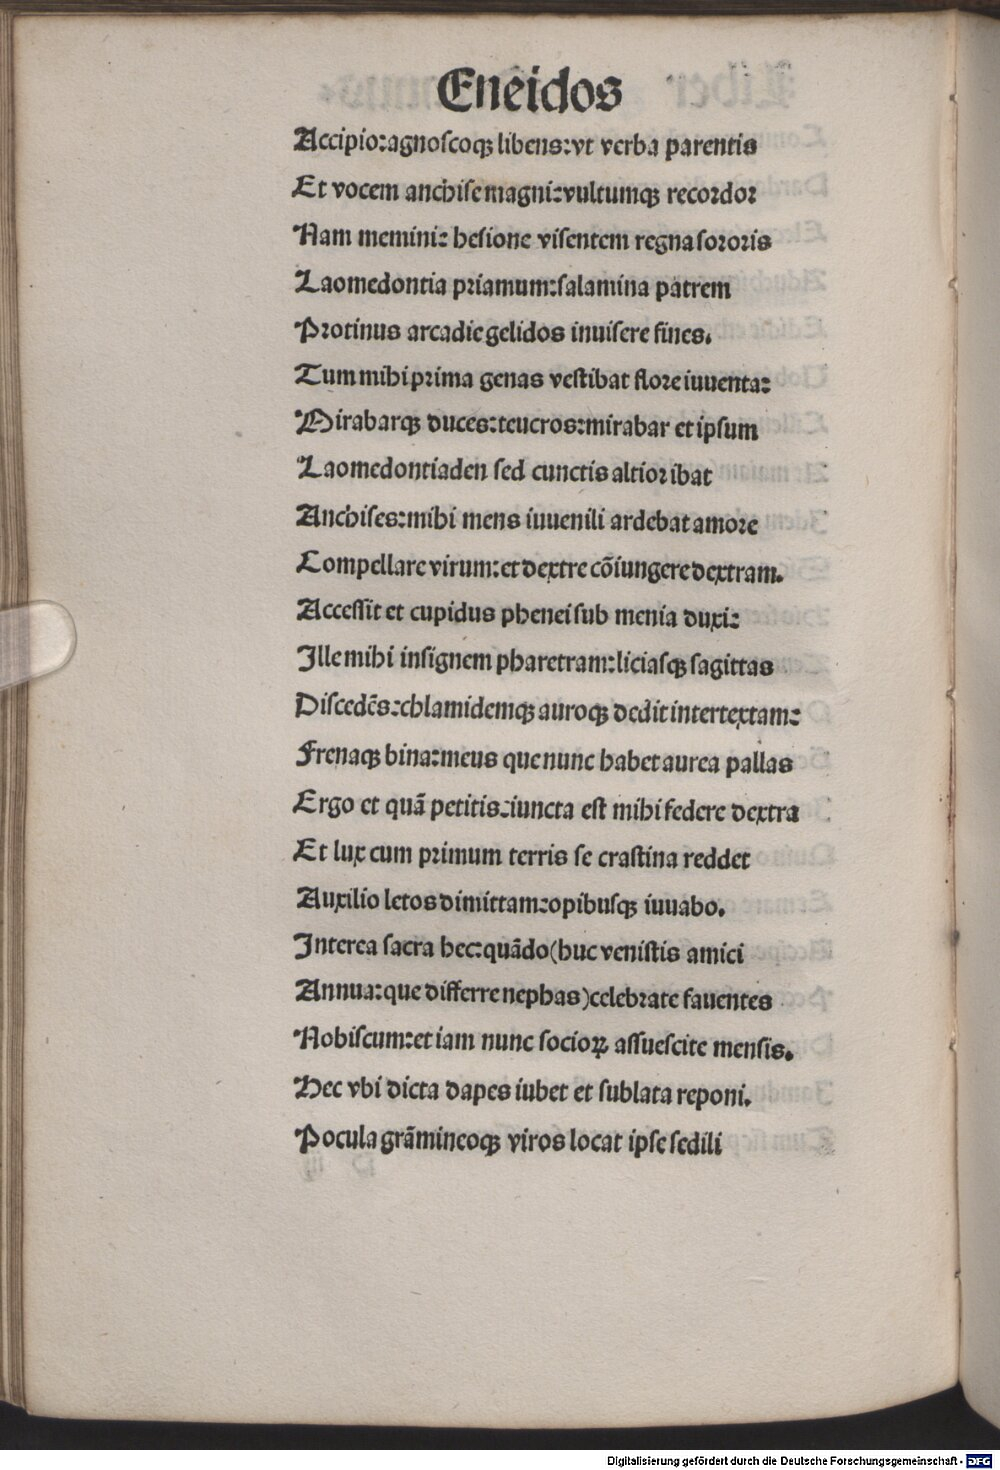 Eneidos
Accipio:agnoſcoqꝫ libens:vt verba parentis
Et vocem anchiſe magni:vultumqꝫ recordor
Nam memini: heſione viſentem regna ſororis
Laomedontia priamum:ſalamina patrem
Protinus arcadie gelidos inuiſere fines.
Tum mihi prima genas veſtibat flore iuuenta:
Mirabarqꝫ duces:teucros:mirabar et ipſum
Laomedontiaden ſed cunctis altior ibat
Anchiſes:mihi mens iuuenili ardebat amore
Compellare virum:et dextre cõiungere dextram.
Acceſſit et cupidus phenei ſub menia duxi:
Ille mihi inſignem pharetram:liciaſqꝫ ſagittas
Diſcedẽs:chlamidemqꝫ auroqꝫ dedit intertextam:
Frenaqꝫ bina:meus que nunc habet aurea pallas
Ergo et quã petitis:iuncta eſt mihi federe dextra
Et lux cum primum terris ſe craſtina reddet
Auxilio letos dimittam:opibuſqꝫ iuuabo.
Interea ſacra hec:quãdo(huc veniſtis amici
Annua:que differre nephas)celebrate fauentes
Nobiſcum:et iam nunc ſocioꝝ aſſueſcite menſis.
Hec vbi dicta dapes iubet et ſublata reponi.
Pocula grãmineoqꝫ viros locat ipſe ſedili
Digitalisierung gefördert durch die Deutsche Forschungsgemeinschaft - DFG